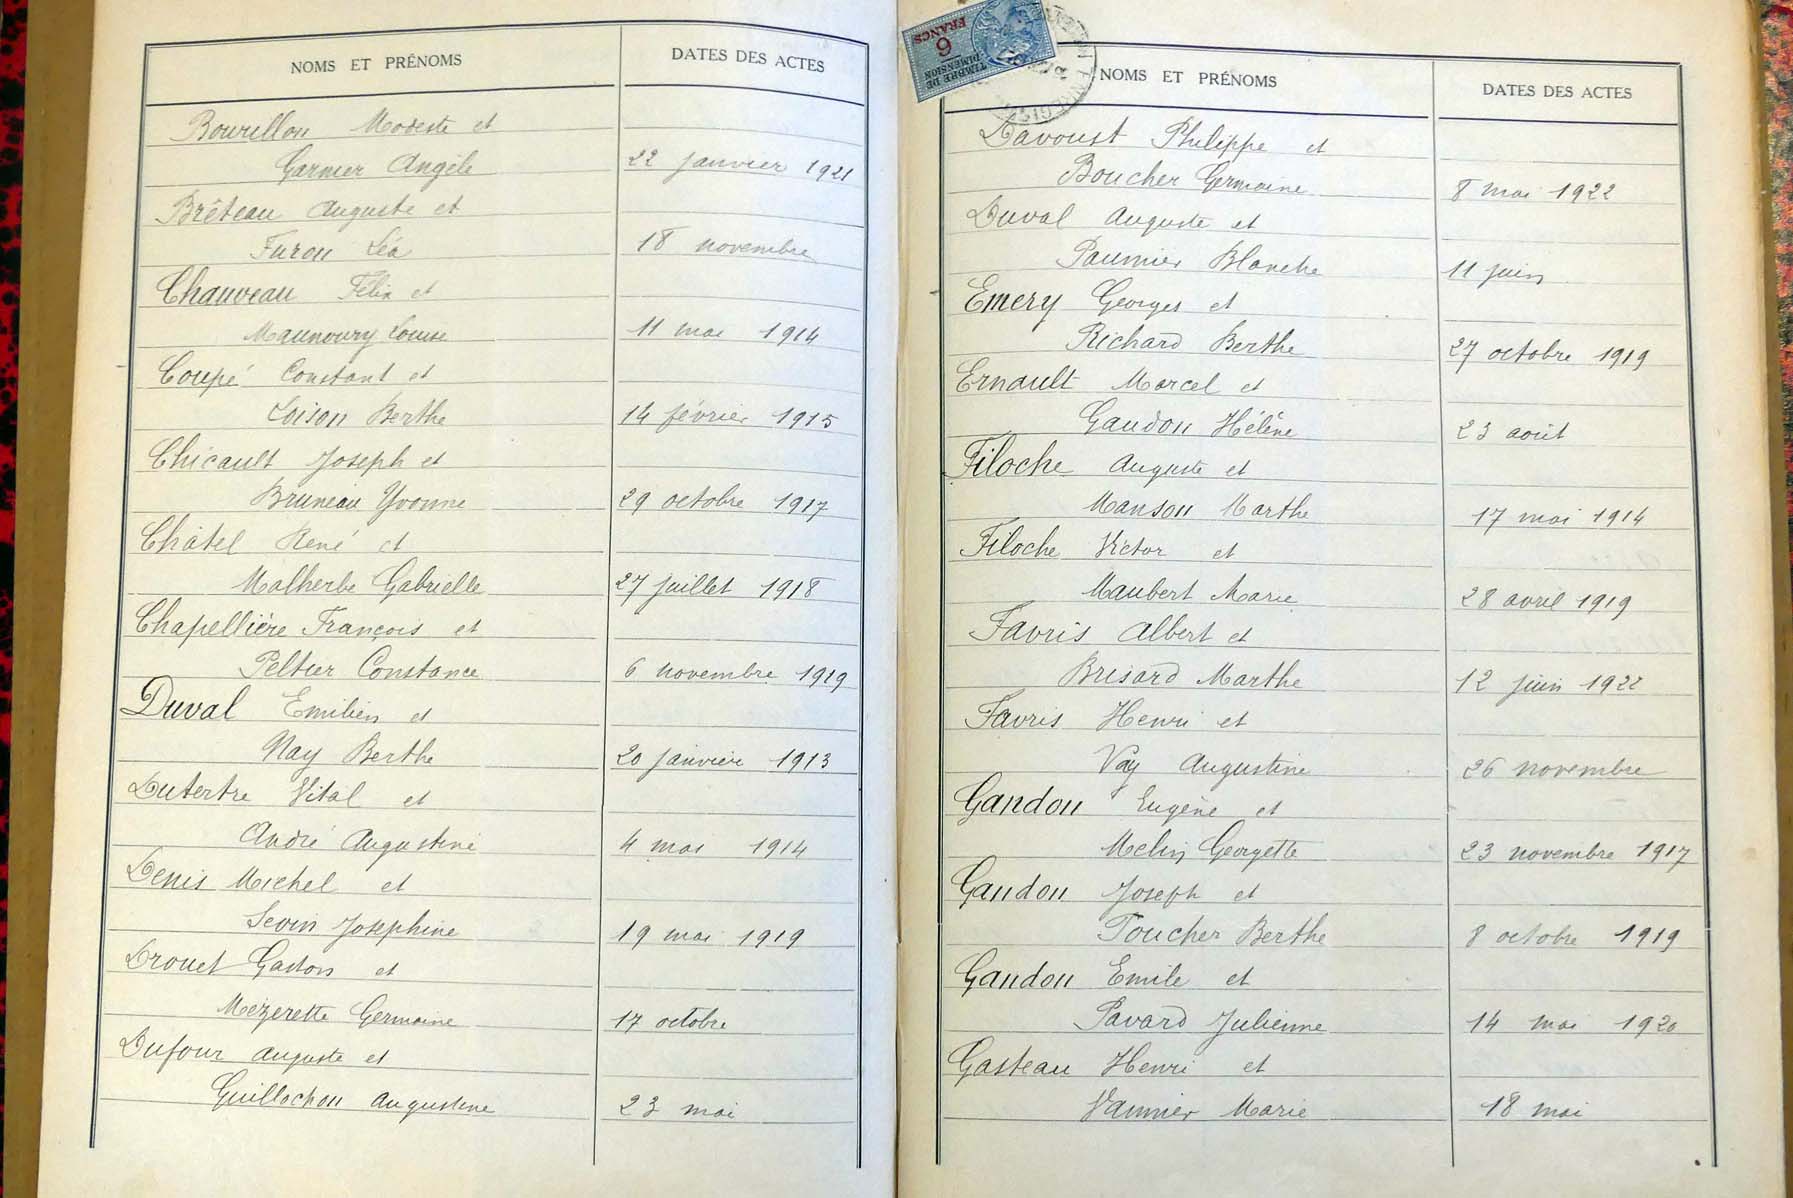 NOMS ET PRÉNOMS DATES DES ACTES
Bourillon Modeste et
Garnier Angèle 22 janvier 1921
Brêteau Auguste et
Furon Léa 18 novembre
Chauveau Félix et
Maunoury Louise 11 mai 1914
Coupé Constant et
Loison Berthe 14 février 1915
Chicault Joseph et
Bruneau Yvonne 29 octobre 1917
Châtel René et
Malherbe Gabrielle 27 juillet 1918
Chapellière François et
Peltier Constance 6 novembre 1919
Duval Emilien et
Nay Berthe 20 janvier 1913
Dutertre Vital et
André Augustine 4 mai 1914
Denis Michel et
Sevin Joséphine 19 mai 1919
Drouet Gaston et
Mézerette Germaine 17 octobre
Dufour Auguste et
Guillochon Augustine 23 mai
TIMBRE DE
DIMENSION
6
FRANCS
NOMS ET PRÉNOMS DATES DES ACTES
Davoust Philippe et
Boucher Germaine 8 mai 1922
Duval Auguste et
Paumier Blanche 11 juin
Emery Georges et
Richard Berthe 27 octobre 1919
Ernault Marcel et
Gaudon Hélène 23 août
Filoche Auguste et
Manson Marthe 17 mai 1914
Filoche Victor et
Maubert Marie 28 avril 1919
Favris Albert et
Brisard Marthe 12 juin 1922
Favris Henri et
Vay Augustine 26 novembre
Gandon Eugène et
Melin Georgette 23 novembre 1917
Gandon Joseph et
Foucher Berthe 8 octobre 1919
Gandon Emile et
Pavard Julienne 14 mai 1920
Gasteau Henri et
Vannier Marie 18 mai